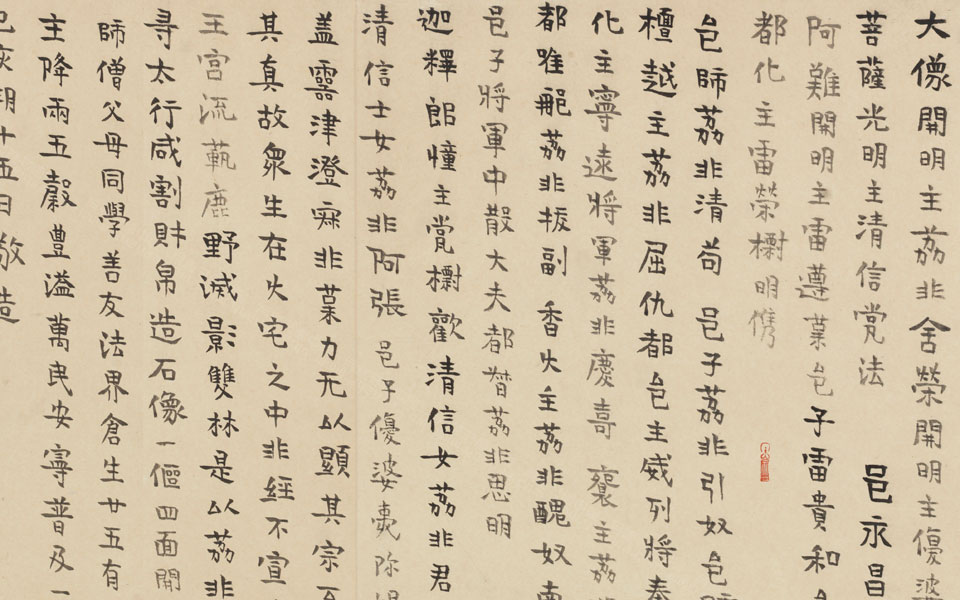 大像開明主荔非舍榮開明主優婆
菩薩光明主清信党法 邑永昌
阿難開明主雷遵葉邑子雷貴和
都化主雷榮欄明儁
邑師荔非清苟 邑子荔非引奴邑
檀越主荔非屈仇都邑主威列將奉
化主寧遠將軍荔非慶哥 襄主荔
都唯那荔非拔副 香火主荔非醜奴
邑子將軍中散大夫都督荔非思明
迦釋郎憧主党欄歡清信女荔非君
清信士女荔非阿張 邑子優婆夷
盖靈津澄寂非葉力无以顯其宗
其真故衆生在火宅之中非經不宣
王宮流蓺鹿野滅影雙林是以荔非
尋太行咸割財帛造石像一傴四面開
師僧父母同學善友法界倉生廿五有
主降雨五穀豊溢萬民安寧普及一
亥朔十五日敬造